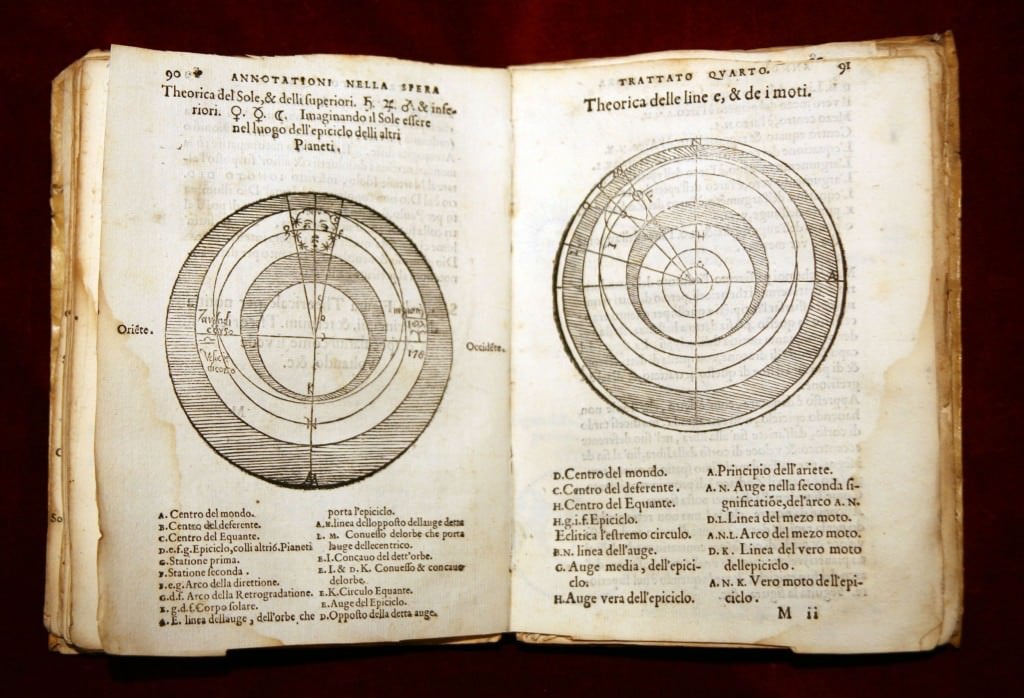 90
ANNOTATIONI NELLA SPERA
Theorica del Sole, & delli superiori. ♄. ♃. ♂ & infe-
riori. ♀. ☿. ☾. Imaginando il Sole essere
nel luogo dell'epiciclo delli altri
Pianeti.
Oriēte.
Occidēte.
A. Centro del mondo.
B. Centro del deferente.
C. Centro del Equante.
D.e.f.g. Epiciclo, colli altri 6. Pianeti
G. Statione prima.
F. Statione seconda.
E.e.g. Arco della direttione.
G.d.f. Arco della Retrogradatione.
E.g.d.f. Corpo solare.
A.E. linea dellauge, dell'orbe che
porta l'epiciclo.
A.N. linea dellopposto dellauge detta
L. M. Conuesso delorbe che porta
lauge dellecentrico.
E.I. Concauo del dett'orbe.
E. I. & D. K. Conuesso & concauo
delorbe.
E.K. Circulo Equante.
E. Auge del Epiciclo.
D. Opposto della detta auge.
TRATTATO QVARTO.
91
Theorica delle line e, & de i moti.
D. Centro del mondo.
C. Centro del deferente.
H. Centro del Equante.
H.g.i.f. Epiciclo.
Eclitica l'estremo circulo.
B.N. linea dell'auge.
G. Auge media, dell'epici-
clo.
H. Auge vera dell'epiciclo.
A. Principio dell'ariete.
A. N. Auge nella seconda si-
gnificatiõe, del'arco A. N.
D.L. Linea del mezo moto.
A.N.L. Arco del mezo moto.
D. K. Linea del vero moto
dellepiciclo.
A. N. K. Vero moto dell'epi-
ciclo.
M ii